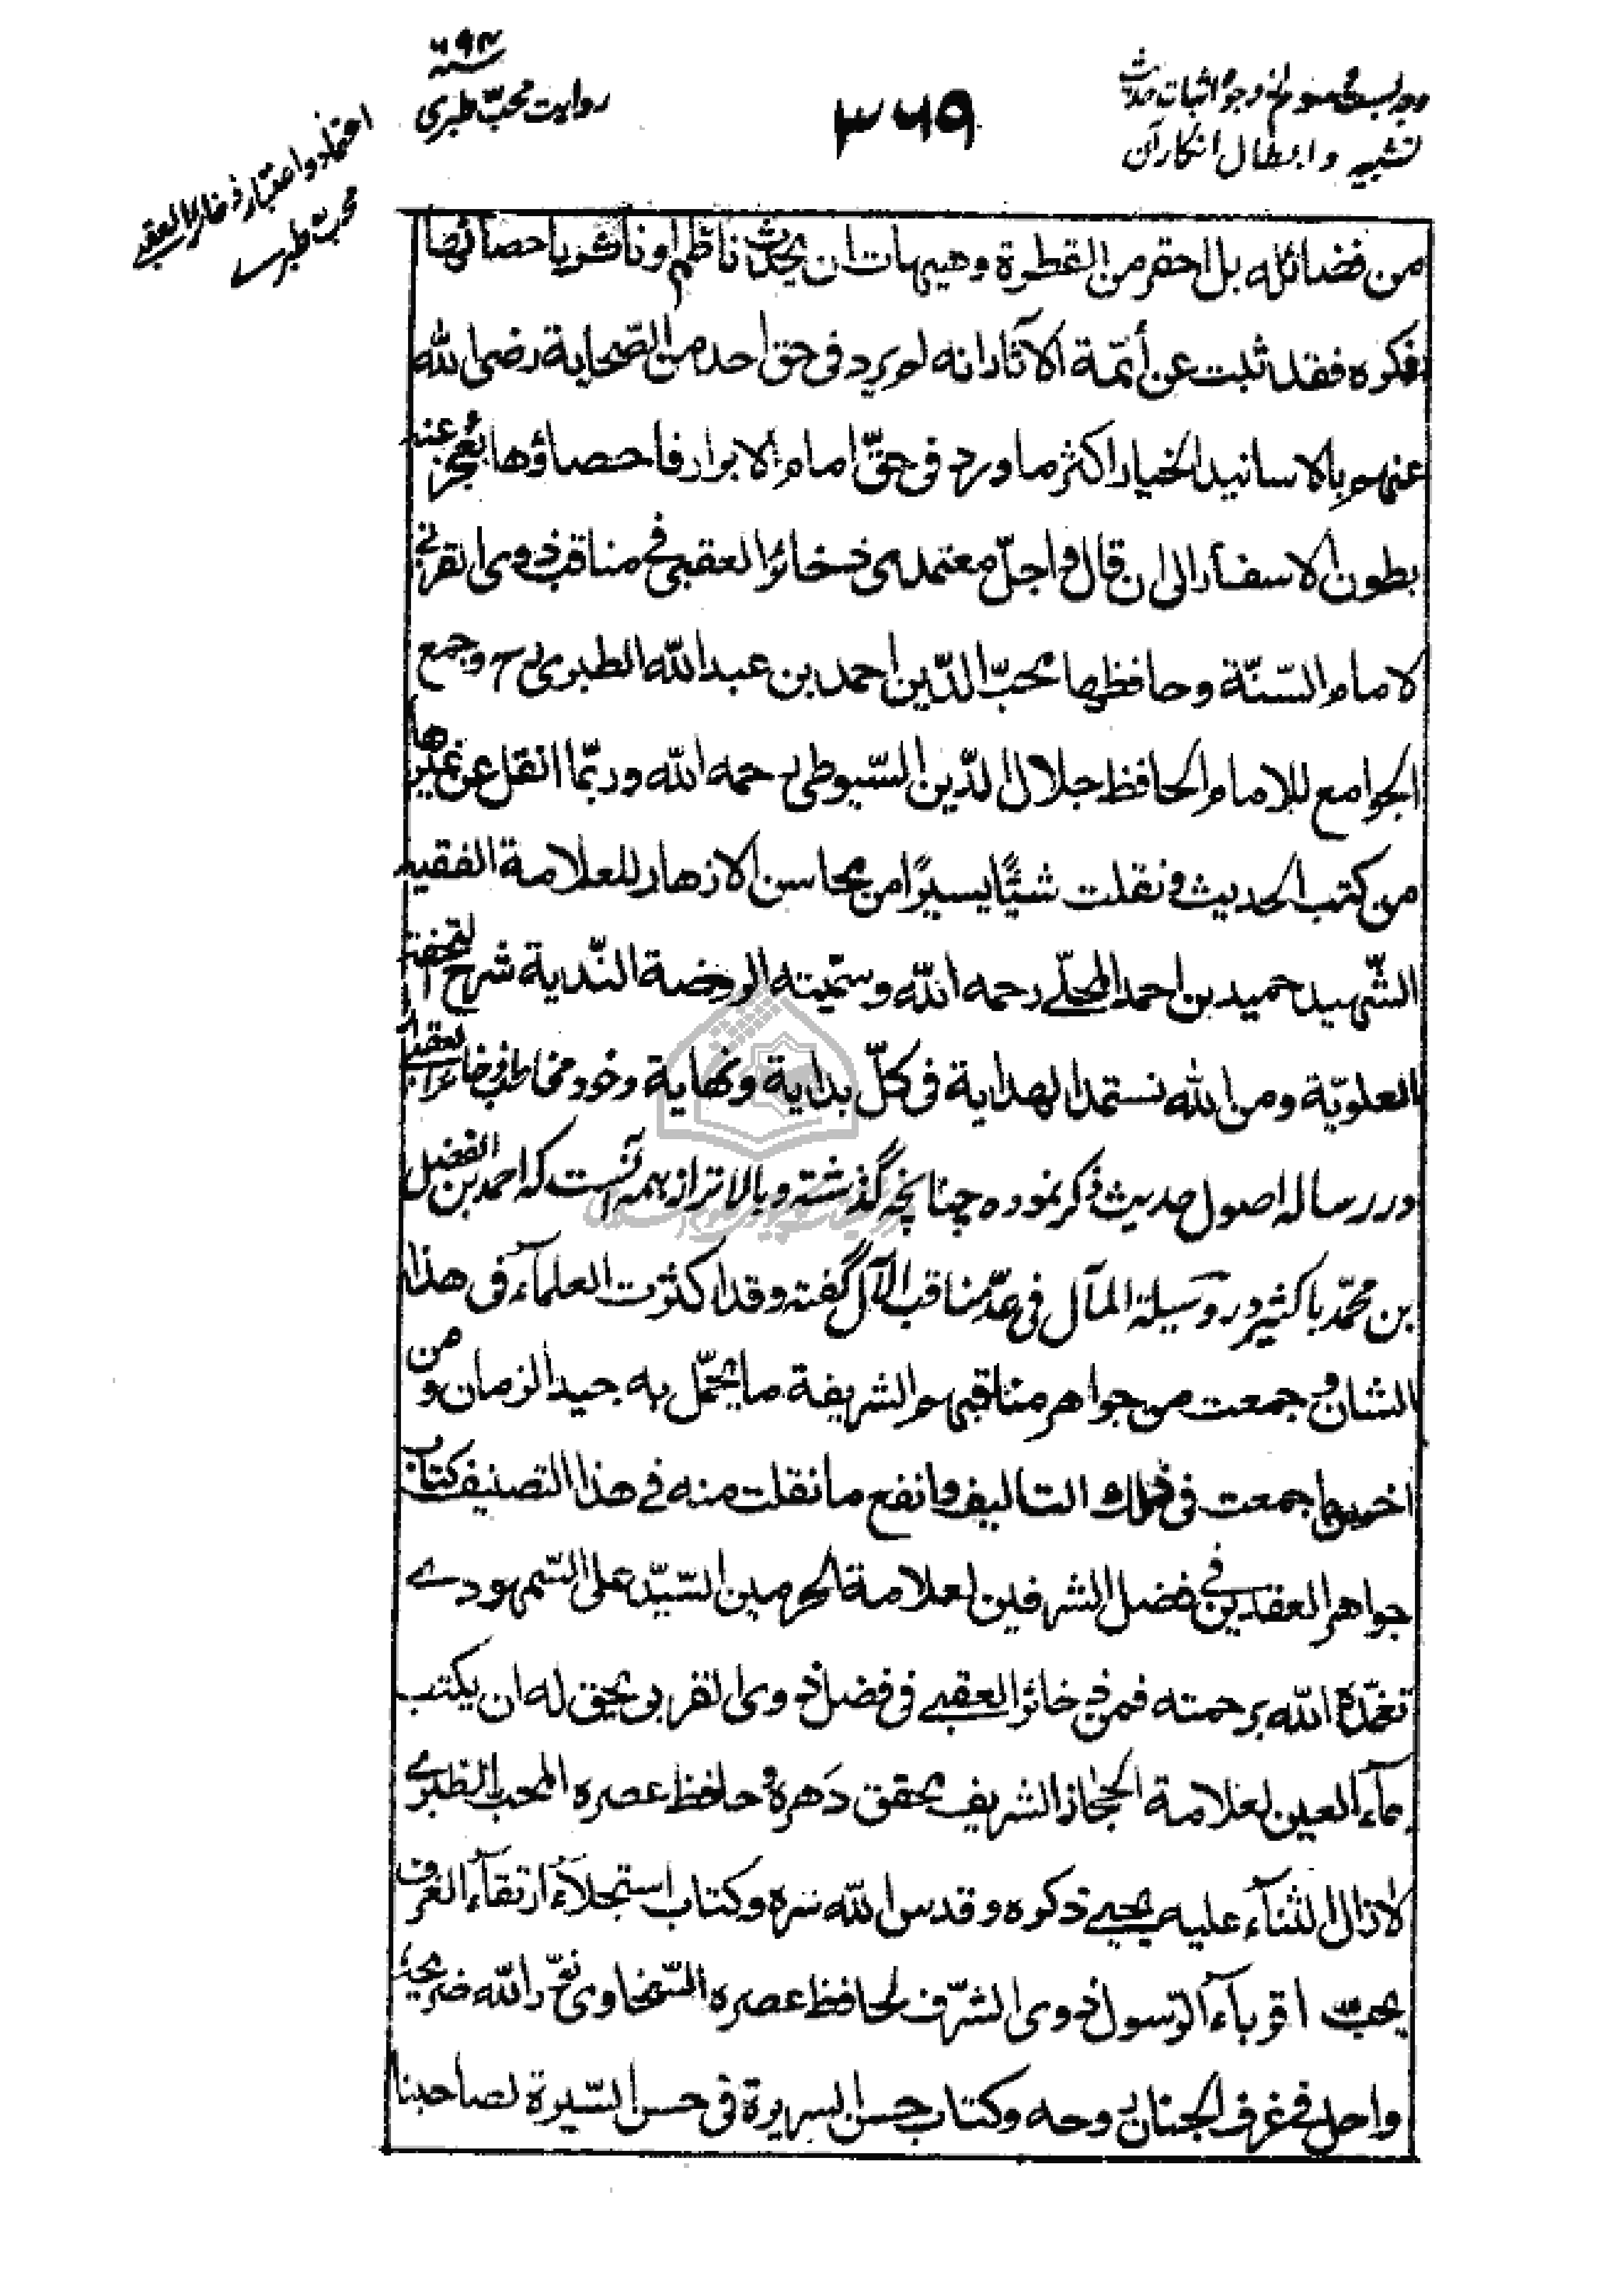 وجه بست و سوم از وجوه اثبات حدیث
تشبیه و ابطال انکار آن
۳۶۹
۶۹۴
روایت محبّ طبری
اعتماد و اعتبار ذخائر العقبی
محبّ طبری
من فضائله بل احقر من القطرة وهیهات ان یحدث ناظم او ناثر باحصائها
فکره فقد ثبت عن أئمّة الآثار انه لم یرد فی حق احد من الصّحابة رضی الله
عنهم بالاسانید الخیار اکثر مما ورد فی حقّ امام الابرار فاحصاؤها تعجز عنه
بطون الاسفار الی ان قال و اجلّ معتمدی ذخائر العقبی فی مناقب ذوی القربی
لامام السّنّة وحافظها محبّ الدّین احمد بن عبد الله الطبری رح وجمع
الجوامع للامام الحافظ جلال الدّین السّیوطی رحمه الله وربّما انقل عن غیرها
من کتب الحدیث و نقلت شیئًا یسیرًا من محاسن الازهار للعلامة الفقیه
الشّهید حمید بن احمد المحلّی رحمه الله وسمّیته الروضة النّدیة شرح التحفة
العلویّة ومن الله نستمد الهدایة فی کلّ بدایة ونهایة وخود مخاطب ذخائر العقبی
در رساله اصول حدیث ذکر نموده چنانچه گذشته و بالاتر از همه آنست که احمد بن الفضل
بن محمّد باکثیر در وسیلة المآل فی عدّ مناقب الآل گفته وقد اکثرت العلمآء فی هذا
الشان و جمعت من جواهر مناقبهم الشریفة ما یجمّل به جید الزمان و من
اخرها جمعت فی ذلک التالیف و انفع ما نقلت منه فی هذا التصنیف کتاب
جواهر العقدین فی فضل الشرفین لعلامة الحرمین السّیّد علی السّمهودی
تغمّده الله برحمته فمن ذخائر العقبی فی فضل ذوی القربی یحق له ان یکتب
بمآء العین لعلامة الحجاز الشریف محقق دَهره و حافظ عصره المحب الطبری
لا زال الثنآء علیه یحیی ذکره وقدس الله سره وکتاب استجلآء ارتقآء الغرف
بحبّ اقربآء الرّسول ذوی الشّرف لحافظ عصره السّخاوی نوّر الله ضریحه
واحل فی غرف الجنان روحه وکتاب حسن السریرة فی حسن السّیرة لصاحبنا